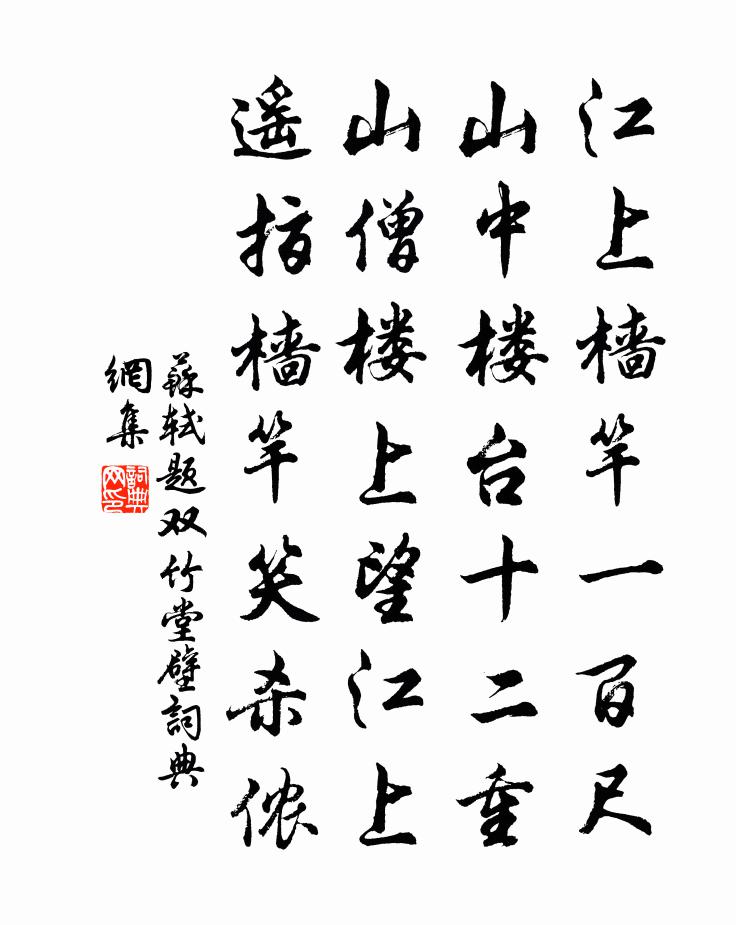 江上樯竿一百尺
山中楼台十二重
山僧楼上望江上
遥指樯竿笑杀侬
蘇軾题双竹堂壁詞典
網集
詞典
网印